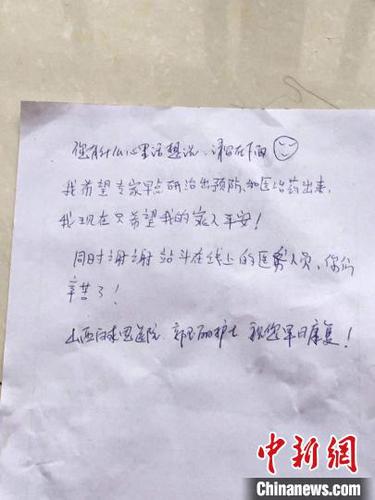 您有什么心里话想说,请留在下面
我希望专家早点研治出预防和医治药出来,
我现在只希望我的家人平安!
同时谢谢站斗在线上的医务人员,你们
辛苦了!
山西白求恩医院 护士 祝您早日康复!
中新网
Chinanews.com